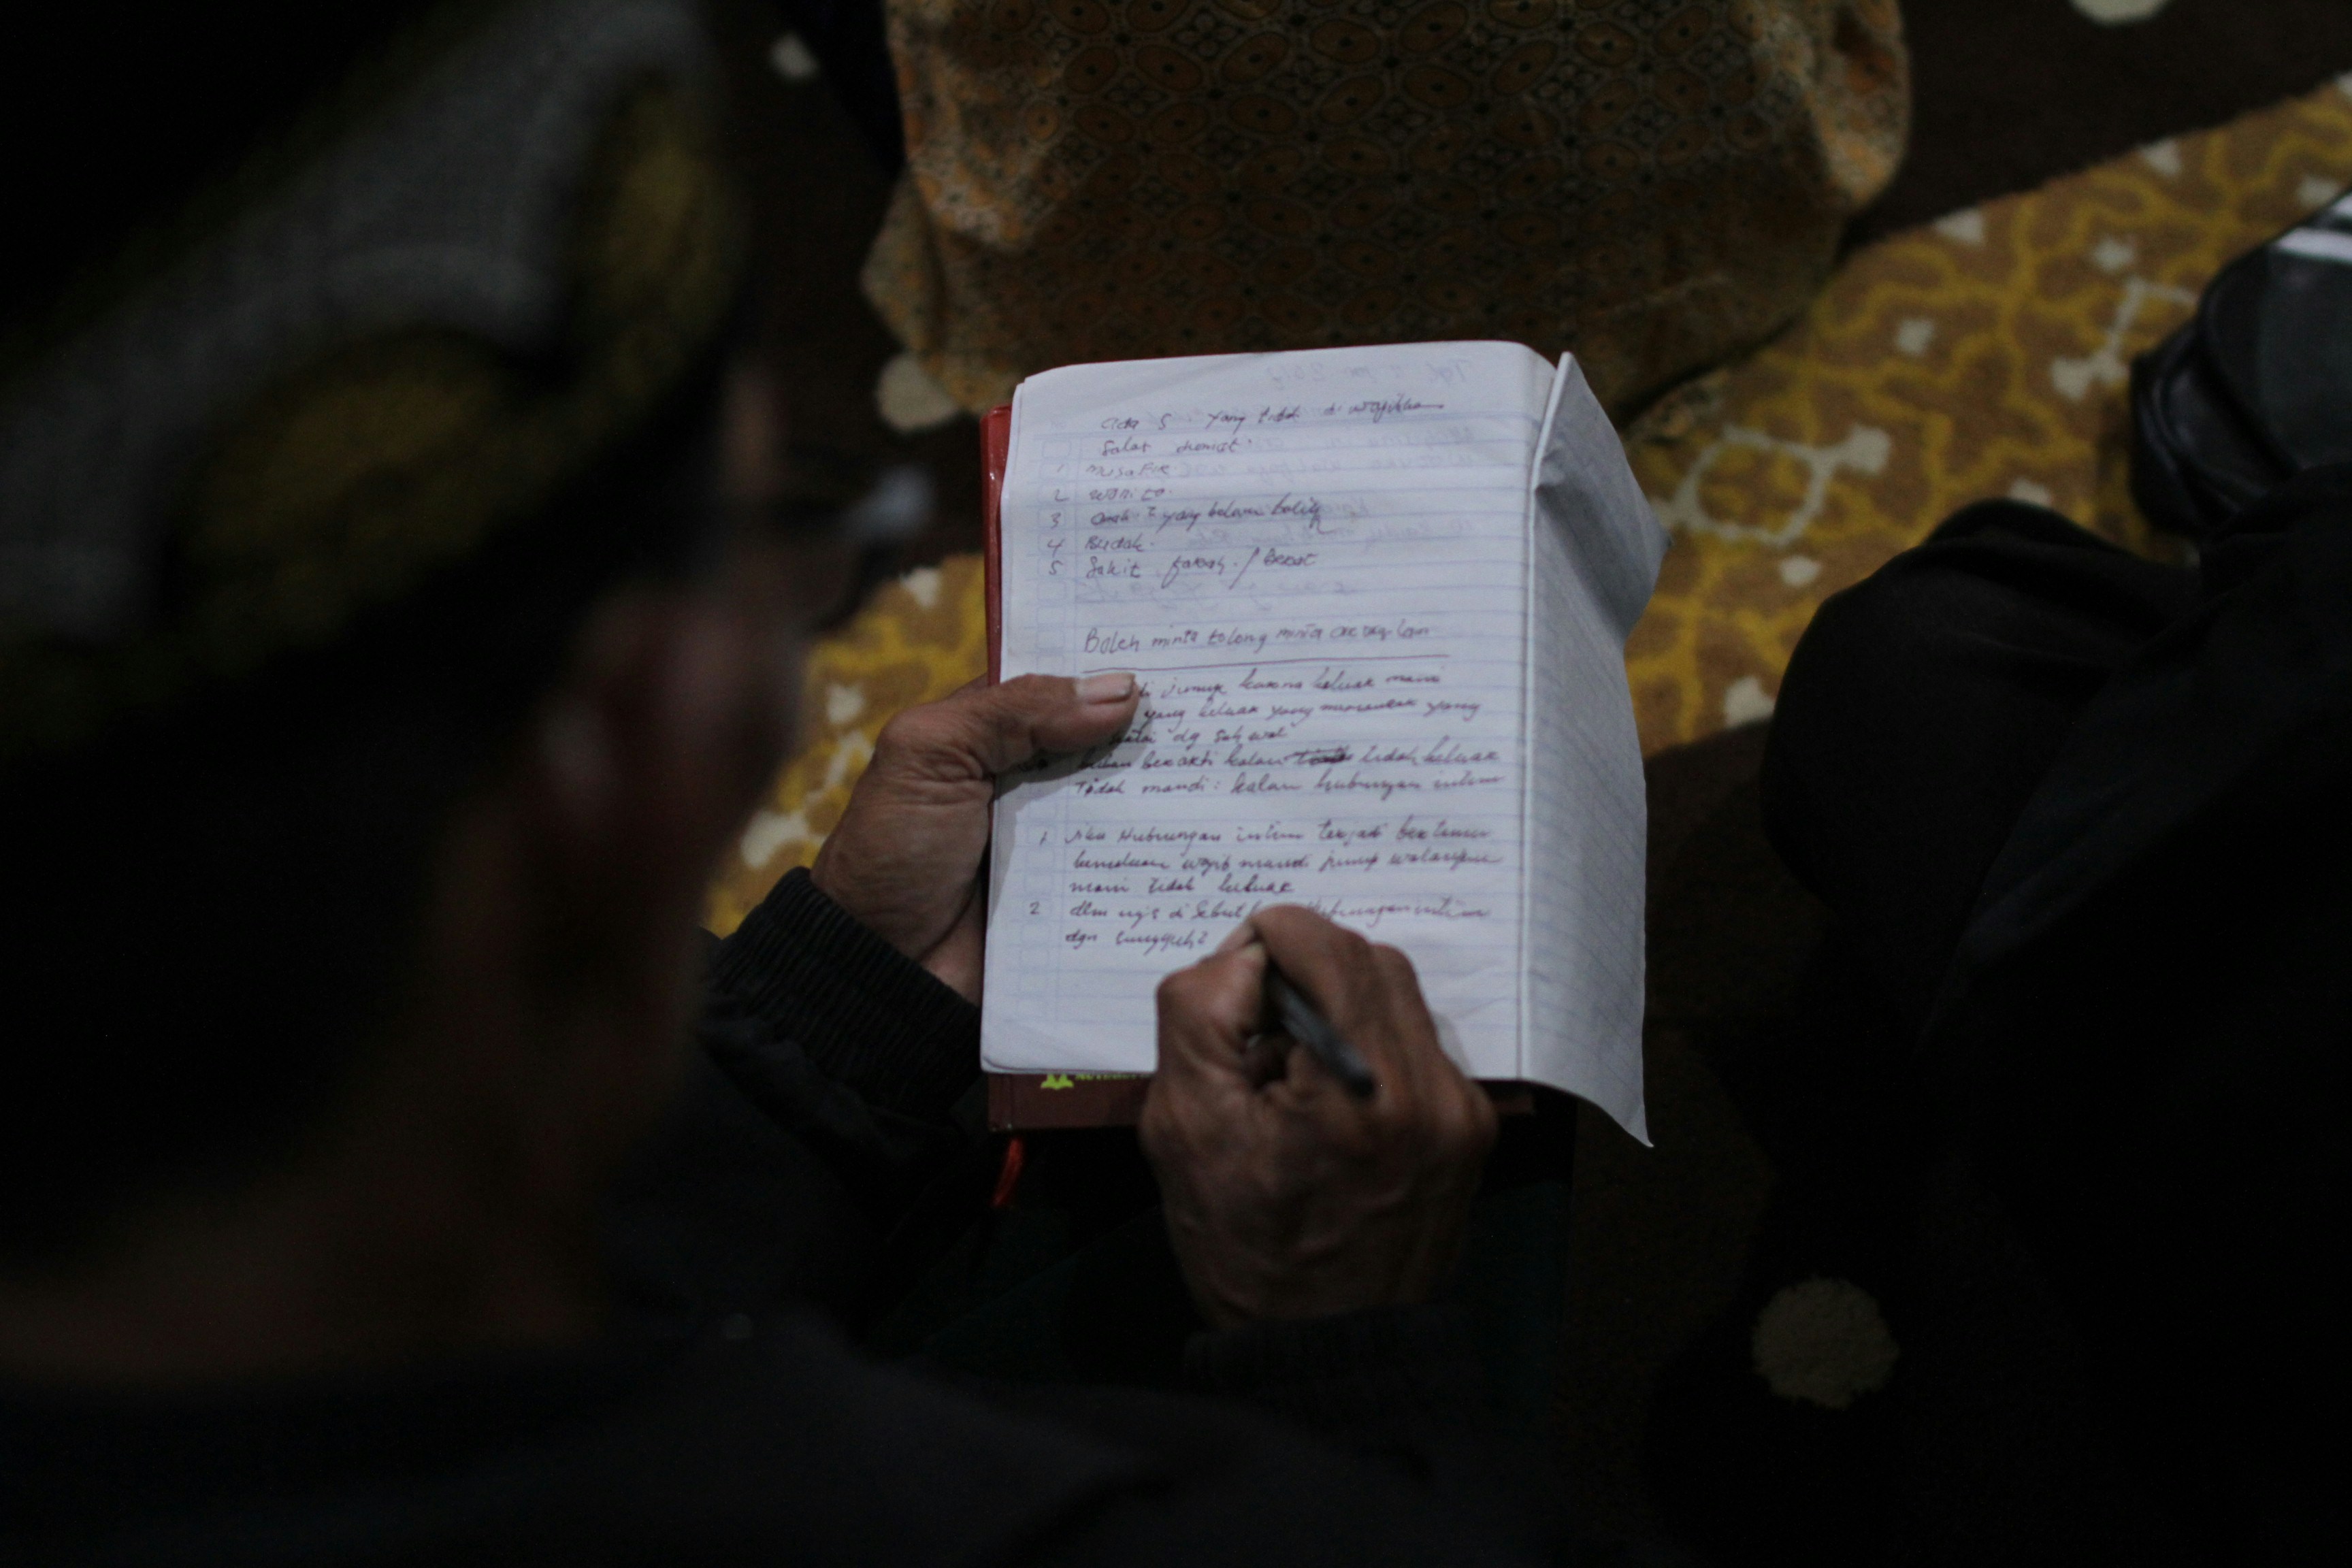 ada 5 yang tidak di wajibkan
Salat
1 musafir
2 wanita
3 anak2 yang belum balig
4 Budak
5 Sakit parah / berat
Boleh minta tolong minta
di junup karena keluar mani
yang keluar yang yang
dg sahwat
bukan berarti kalau tidak keluar
Tidak mandi : kalau hubungan intim
1 Jika Hubungan intim terjadi bertemu
kemaluan wajib mandi junup walaupun
mani tidak keluar
2 dlm di Sebut Hubungan intim
dgn